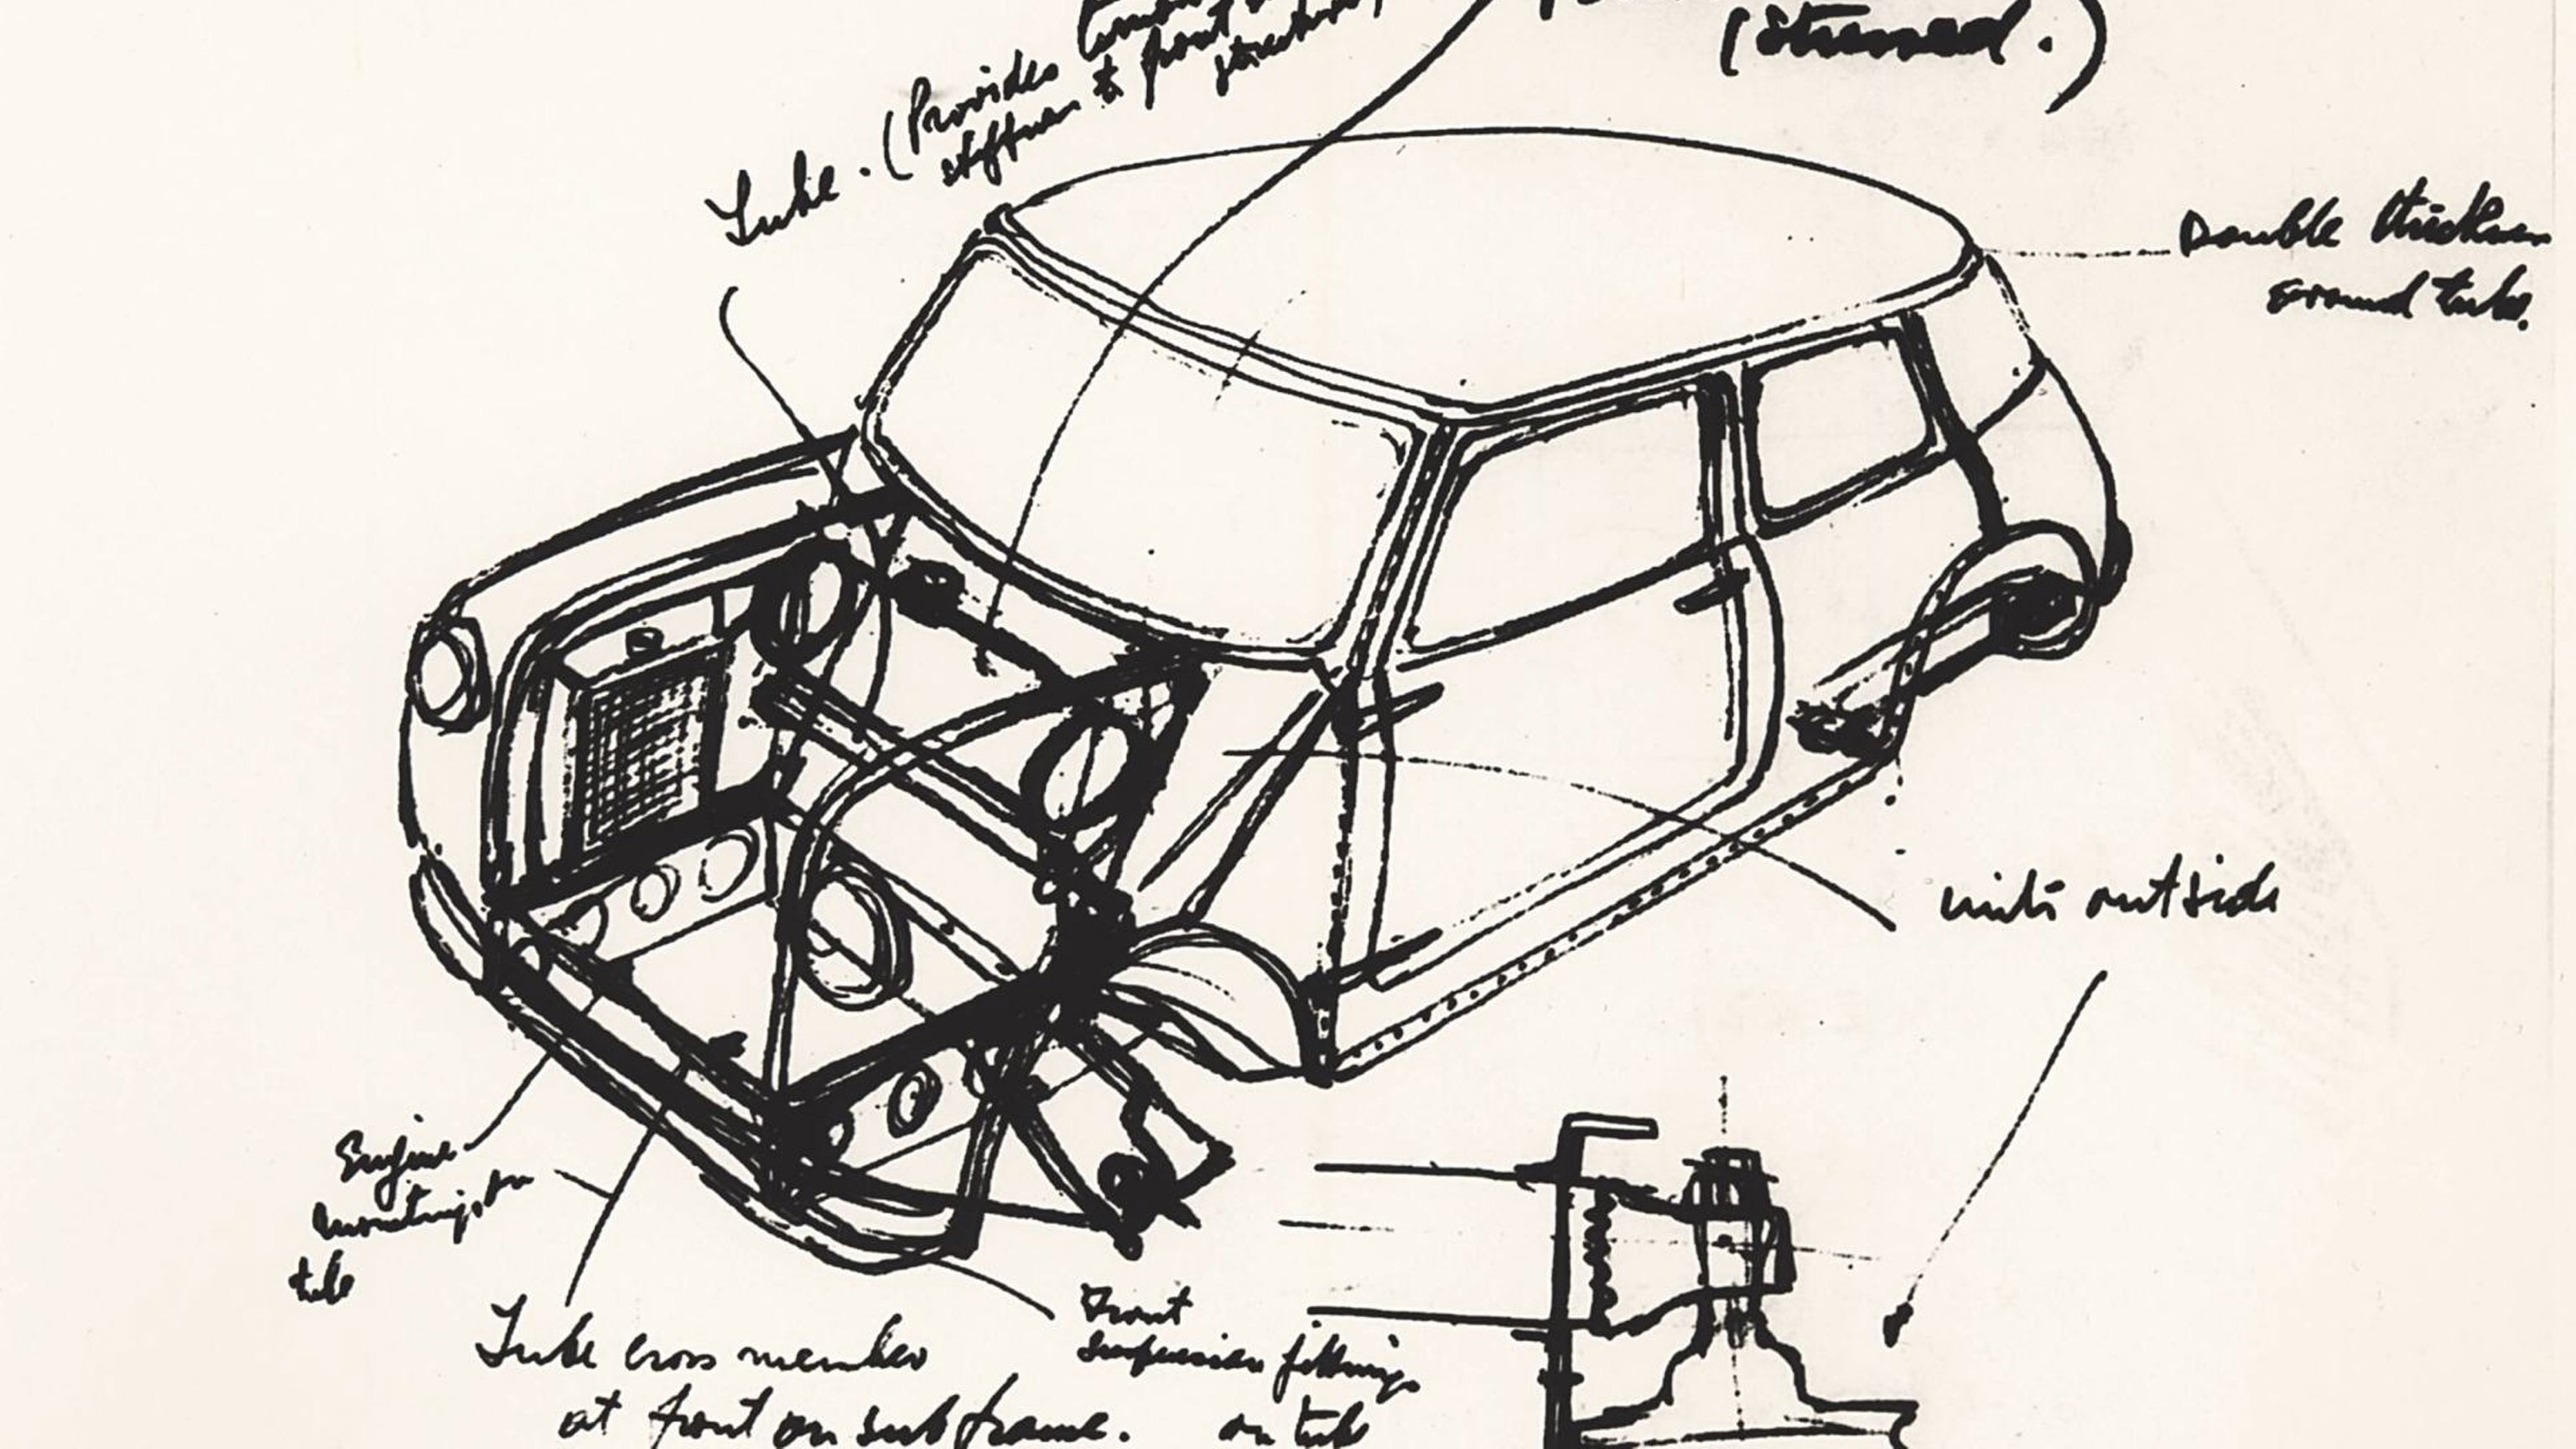 (stressed.)
Tube. (Provides
stiffness to front
structure)
Double thickness
around tube.
units outside
Engine
mountings on
tube
Tube cross member
at front on subframe.
Front
suspension fittings
on tube